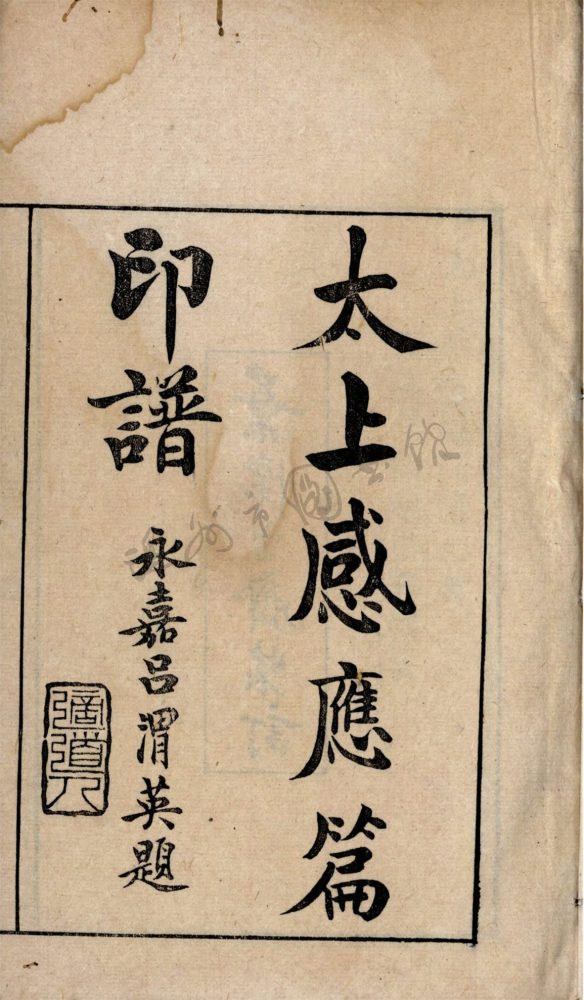 太上感應篇
印譜
永嘉呂渭英題